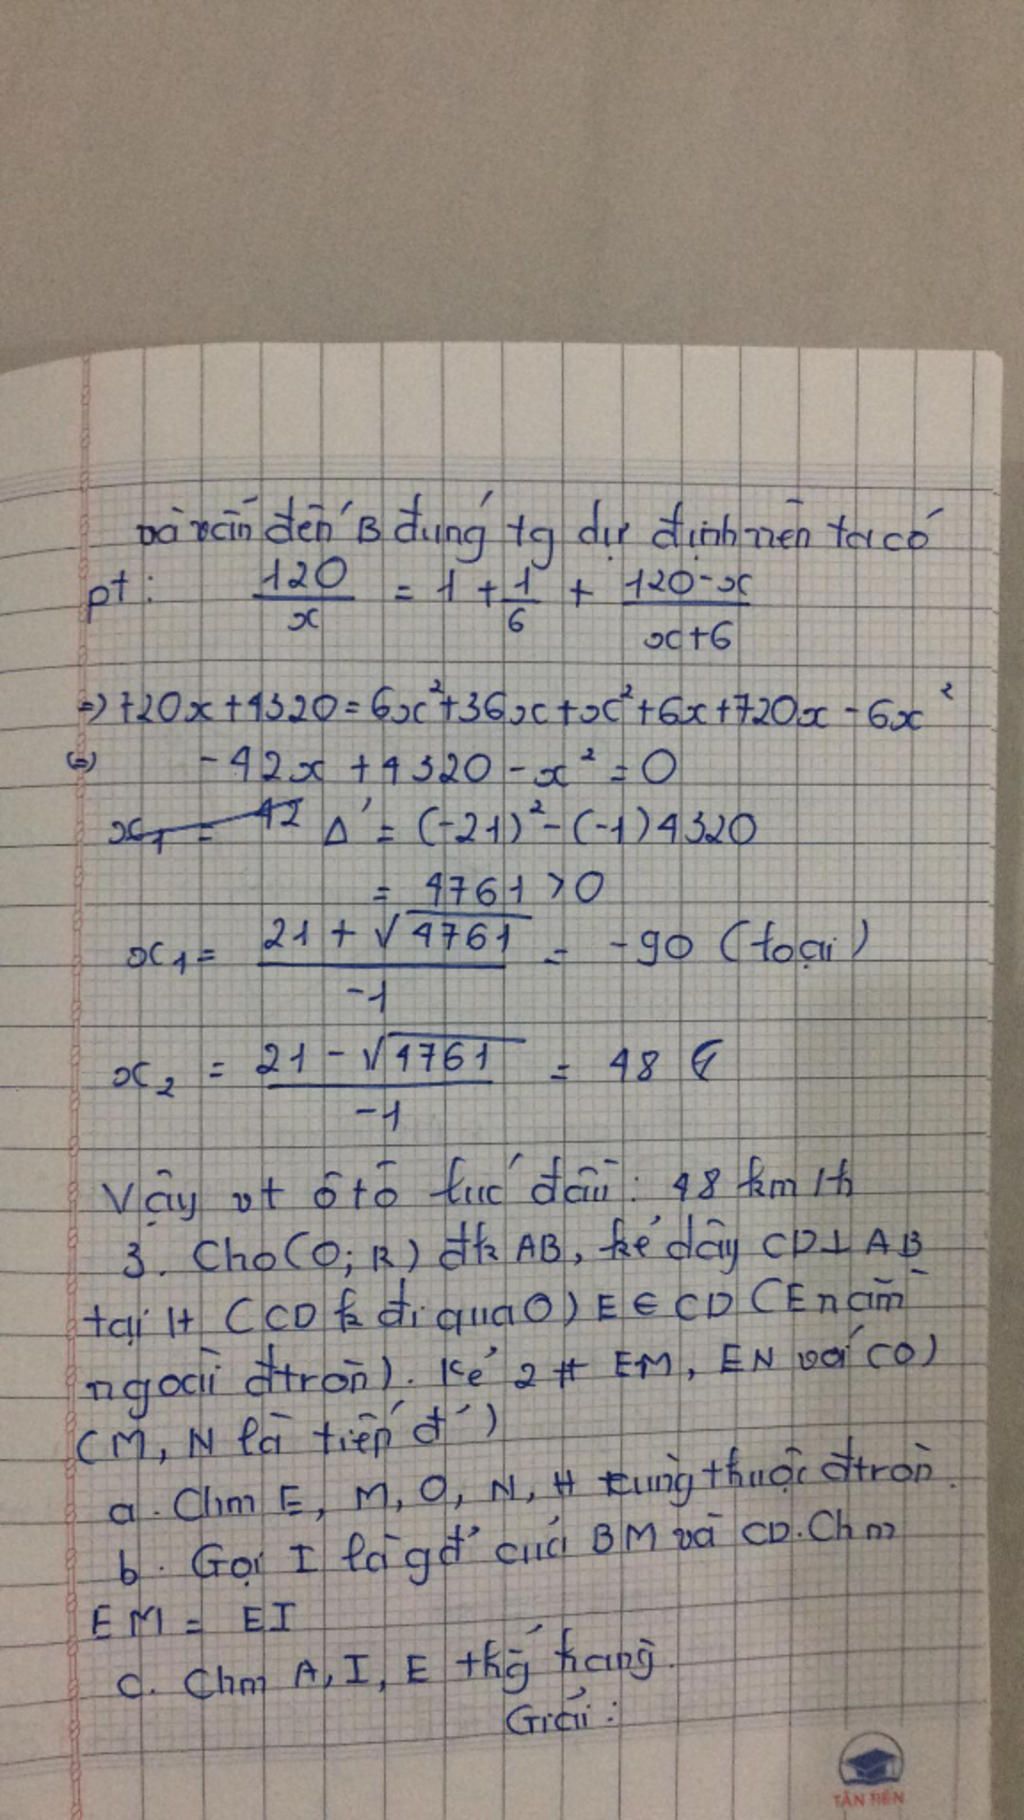 và vẫn đến B đúng tg dự định nên ta có
pt: 120/x = 1 + 1/6 + 120-x/x+6
=> 720x + 4320 = 6x² + 36x + x² + 6x + 720x - 6x²
(=) -42x + 4320 - x² = 0
x₁ = 42 Δ' = (-21)² - (-1)4320
= 4761 > 0
x₁ = 21 + √4761 / -1 = -90 (loại)
x₂ = 21 - √4761 / -1 = 48
Vậy vt ô tô lúc đầu: 48 km/h
3. Cho (O; R) đk AB, kẻ dây CD ⊥ AB
tại H (CD k đi qua O) E ∈ CD (E nằm
ngoài đtròn). Kẻ 2 tt EM, EN với (O)
(M, N là tiếp đ')
a. Chm E, M, O, N, H cùng thuộc đtròn.
b. Gọi I là gđ' của BM và CD. Chm
EM = EI
c. Chm A, I, E thg hàng.
Giải:
TÂN TIẾN